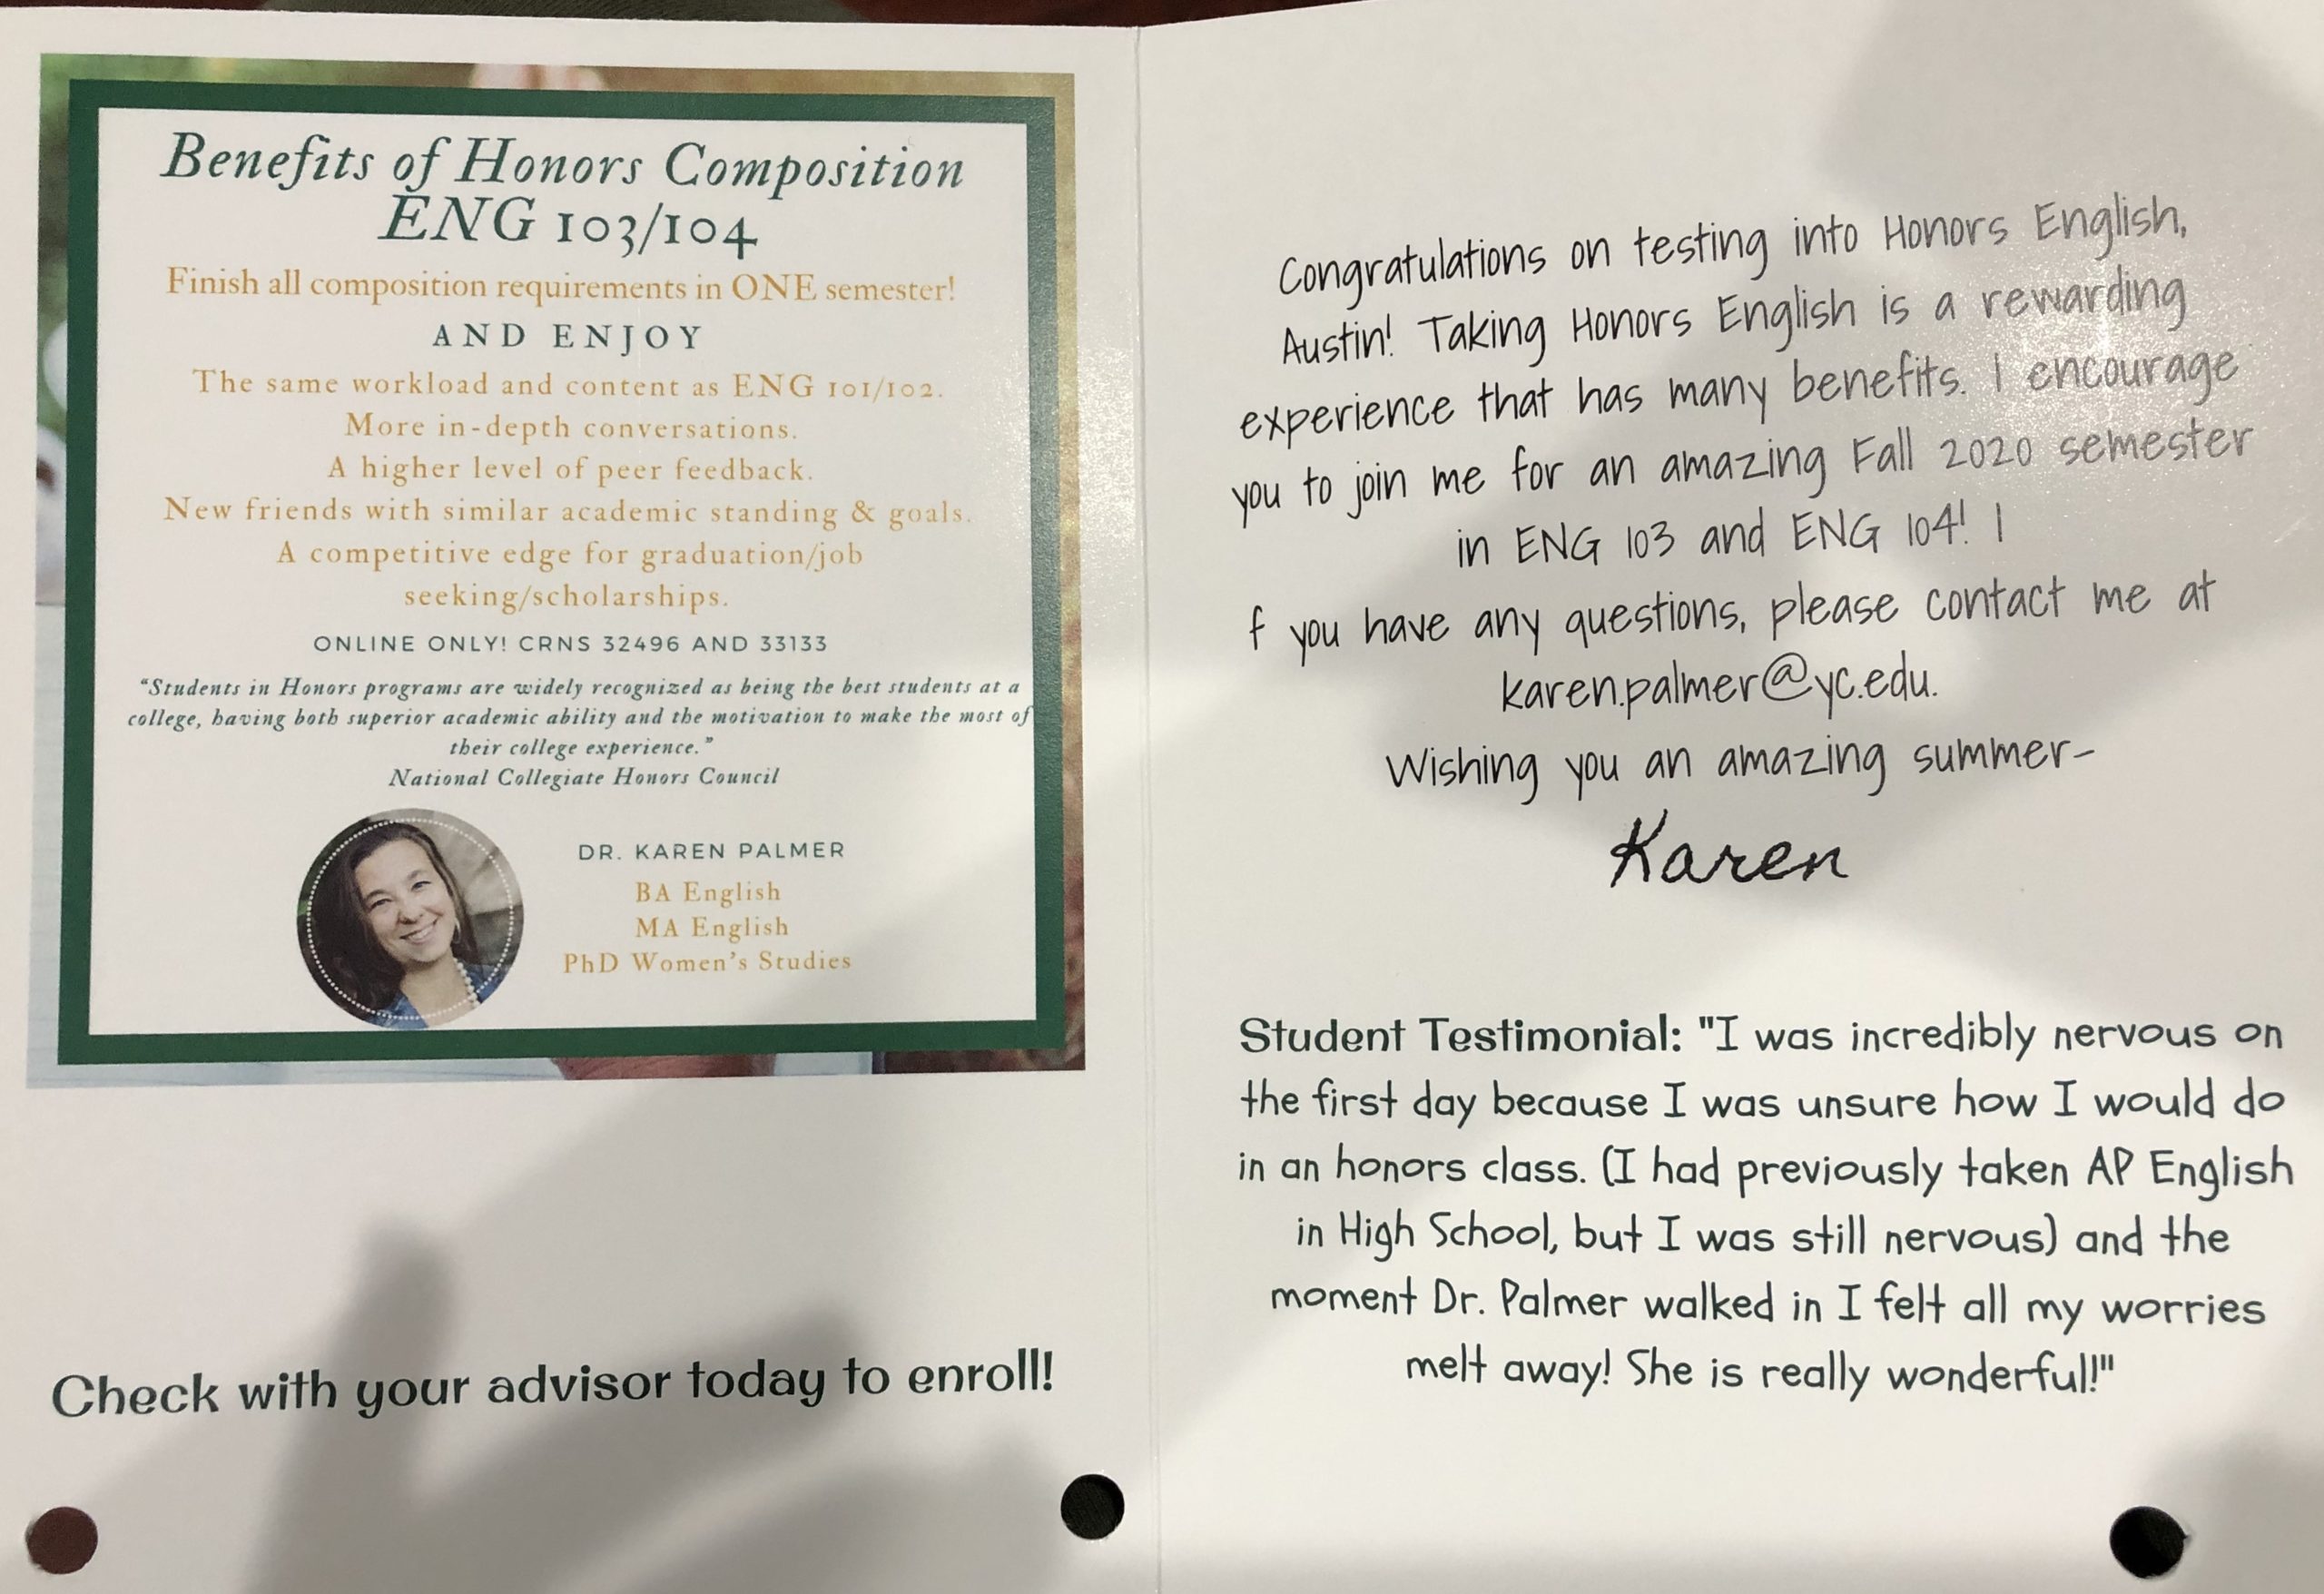 Benefits of Honors Composition
ENG 103/104
Finish all composition requirements in ONE semester!
AND ENJOY
The same workload and content as ENG 101/102.
More in-depth conversations.
A higher level of peer feedback.
New friends with similar academic standing & goals.
A competitive edge for graduation/job
seeking/scholarships.
ONLINE ONLY! CRNS 32496 AND 33133
"Students in Honors programs are widely recognized as being the best students at a
college, having both superior academic ability and the motivation to make the most of
their college experience."
National Collegiate Honors Council
DR. KAREN PALMER
BA English
MA English
PhD Women's Studies
Check with your advisor today to enroll!
Congratulations on testing into Honors English,
Austin! Taking Honors English is a rewarding
experience that has many benefits. I encourage
you to join me for an amazing Fall 2020 semester
in ENG 103 and ENG 104! I
f you have any questions, please contact me at
karen.palmer@yc.edu.
Wishing you an amazing summer-
Karen
Student Testimonial: "I was incredibly nervous on
the first day because I was unsure how I would do
in an honors class. (I had previously taken AP English
in High School, but I was still nervous) and the
moment Dr. Palmer walked in I felt all my worries
melt away! She is really wonderful!"